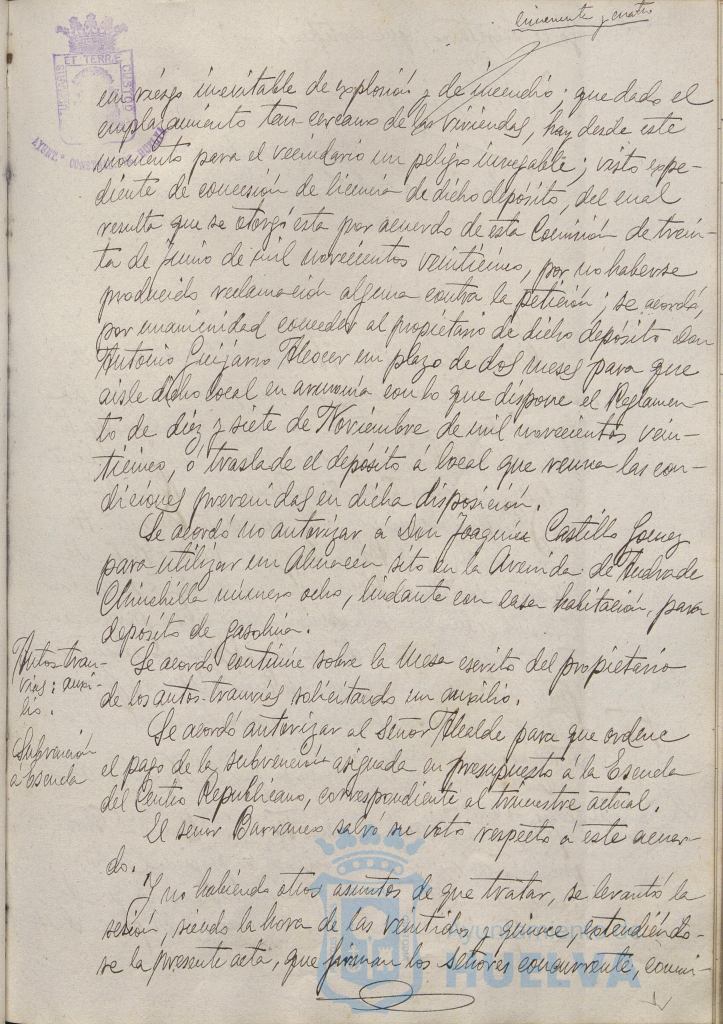 cincuenta y cuatro
ET TERRÆ
CUSTOD
AYUNT.º CONST
un riesgo inevitable de explosión y de incendio; que dado el
emplazamiento tan cercano de las viviendas, hay desde este
momento para el vecindario un peligro innegable; visto expe-
diente de concesión de licencia de dicho depósito, del cual
resulta que se otorgó esta por acuerdo de esta Comisión de trein-
ta de junio de mil novecientos veinticinco, por no haberse
producido reclamación alguna contra la petición; se acordó,
por unanimidad conceder al propietario de dicho depósito Don
Antonio Guijarro Alcocer un plazo de dos meses para que
aisle dicho local en armonía con lo que dispone el Reglamen-
to de diez y siete de Noviembre de mil novecientos vein-
ticinco, o traslade el depósito á local que reuna las con-
diciones prevenidas en dicha disposición.
Se acordó no autorizar á Don Joaquín Castillo Gomez
para utilizar un Almacén sito en la Avenida de Andrade
Chinchilla número ocho, lindante con casa habitación, para
depósito de gasolina.
Autos tran-
vías: auxi-
lio.
Se acordó continúe sobre la Mesa escrito del propietario
de los autos-tranvías solicitando un auxilio.
Subvención
a Escuela
Se acordó autorizar al Señor Alcalde para que ordene
el pago de la subvención asignada en presupuesto á la Escuela
del Centro Republicano, correspondiente al trimestre actual.
El señor Barranco salvó su voto respecto á este acuer-
do.
Y no habiendo otros asuntos de que tratar, se levantó la
sesión, siendo la hora de las veintidos y quince, extendiéndo-
se la presente acta, que firman los Señores concurrente, conmi-
Ayuntamiento
HUELVA